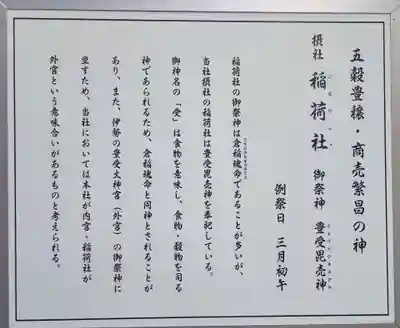 五穀豊穣・商売繁昌の神
摂社 稲荷社 御祭神 豊受毘売神
例祭日 三月初午
稲荷社の御祭神は倉稲魂命であることが多いが、
当社摂社の稲荷社は豊受毘売神を奉祀している。
御神名の「受」は食物を意味し、食物・穀物を司る
神であられるため、倉稲魂命と同神とされることが
あり、また、伊勢の豊受大神宮(外宮)の御祭神に
坐すため、当社においては本社が内宮・稲荷社が
外宮という意味合いがあるものと考えられる。